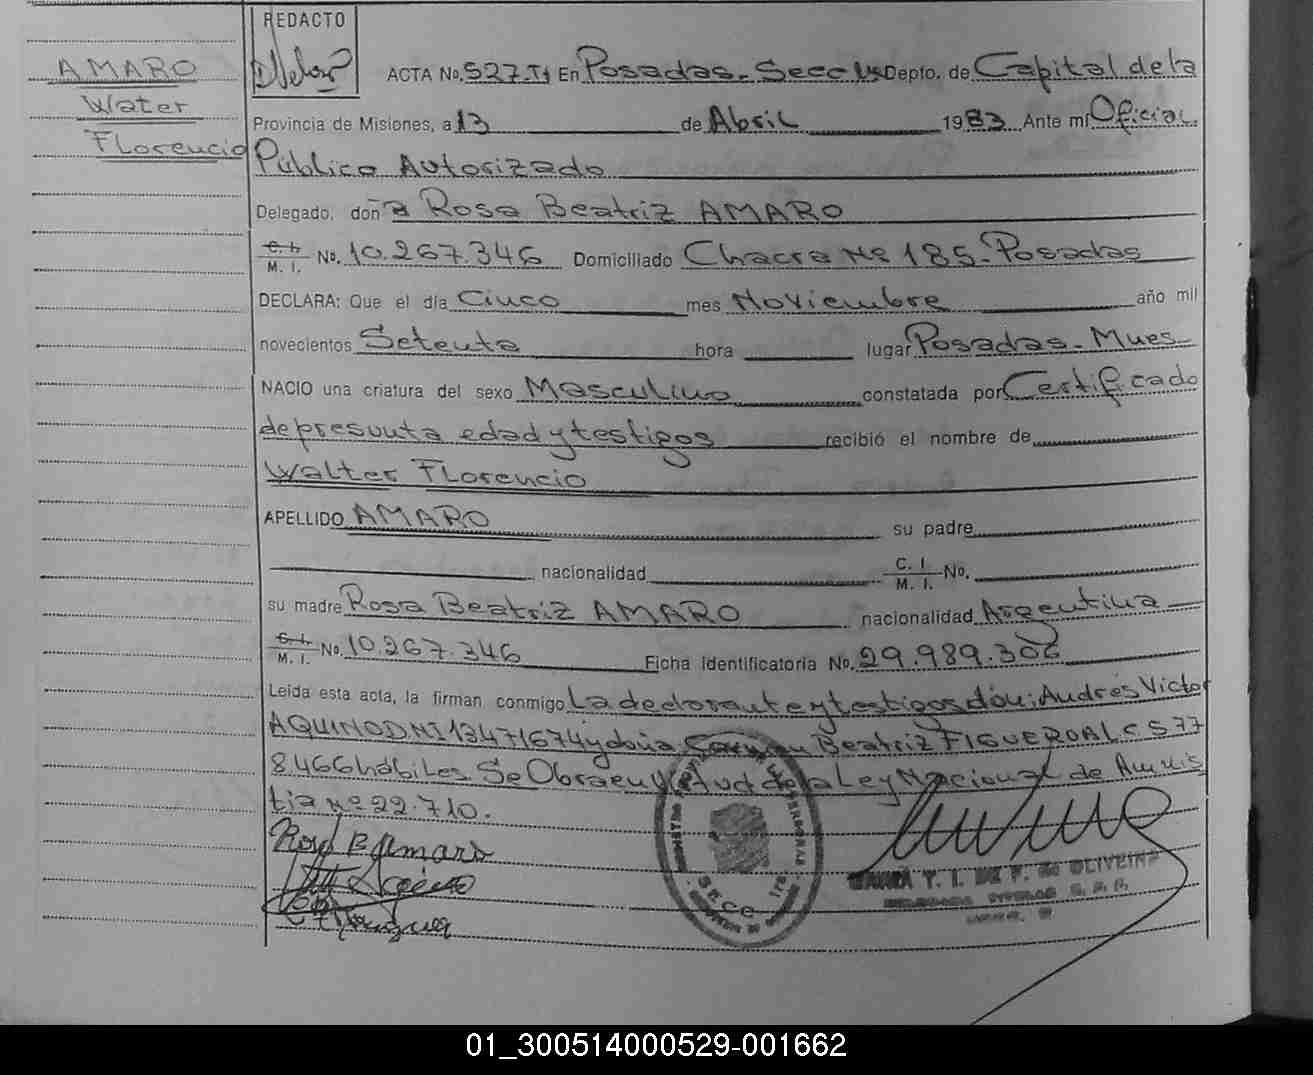 AMARO
Water
Florencio
REDACTO
ACTA No. 527.T1 En Posadas - Secc 1ra Depto. de Capital de la
Provincia de Misiones, a 13 de Abril 1983 Ante mí Oficial
Público Autorizado
Delegado, don a Rosa Beatriz AMARO
C. I. M. I. No. 10.267.346 Domiciliado Chacra Nº 185 - Posadas
DECLARA: Que el día Cinco mes Noviembre año mil
novecientos Setenta hora lugar Posadas - Mnes
NACIO una criatura del sexo Masculino constatada por Certificado
de presunta edad y testigos recibió el nombre de
Walter Florencio
APELLIDO AMARO su padre
nacionalidad C. I. M. I. No.
su madre Rosa Beatriz AMARO nacionalidad Argentina
C. I. M. I. No. 10.267.346 Ficha Identificatoria No. 29.989.306
Leída esta acta, la firman conmigo La declorante y testigos don: Andrés Victor
AQUINO DNI 13471674 y doña Carmen Beatriz FIGUEROA LC 577
8466 hábiles Se Obra en Virtud de la Ley Nacional de Amnis
tia nº 22.710.
Rosa B Amaro
SECC. 1ra
T. I. DE F. de OLIVEIRA
01_300514000529-001662